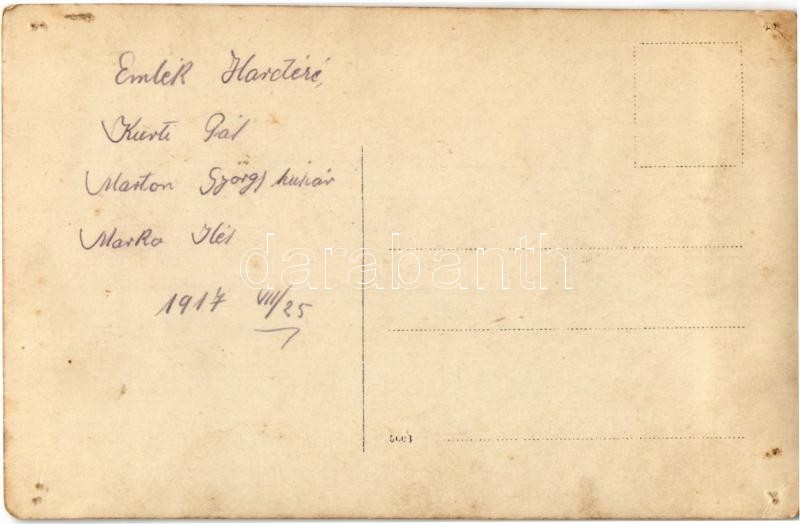 Emlék Harctéré,
Kurti Pál
Marton György huszár
Marko Illés
1917 VIII/25
darabanth
5603